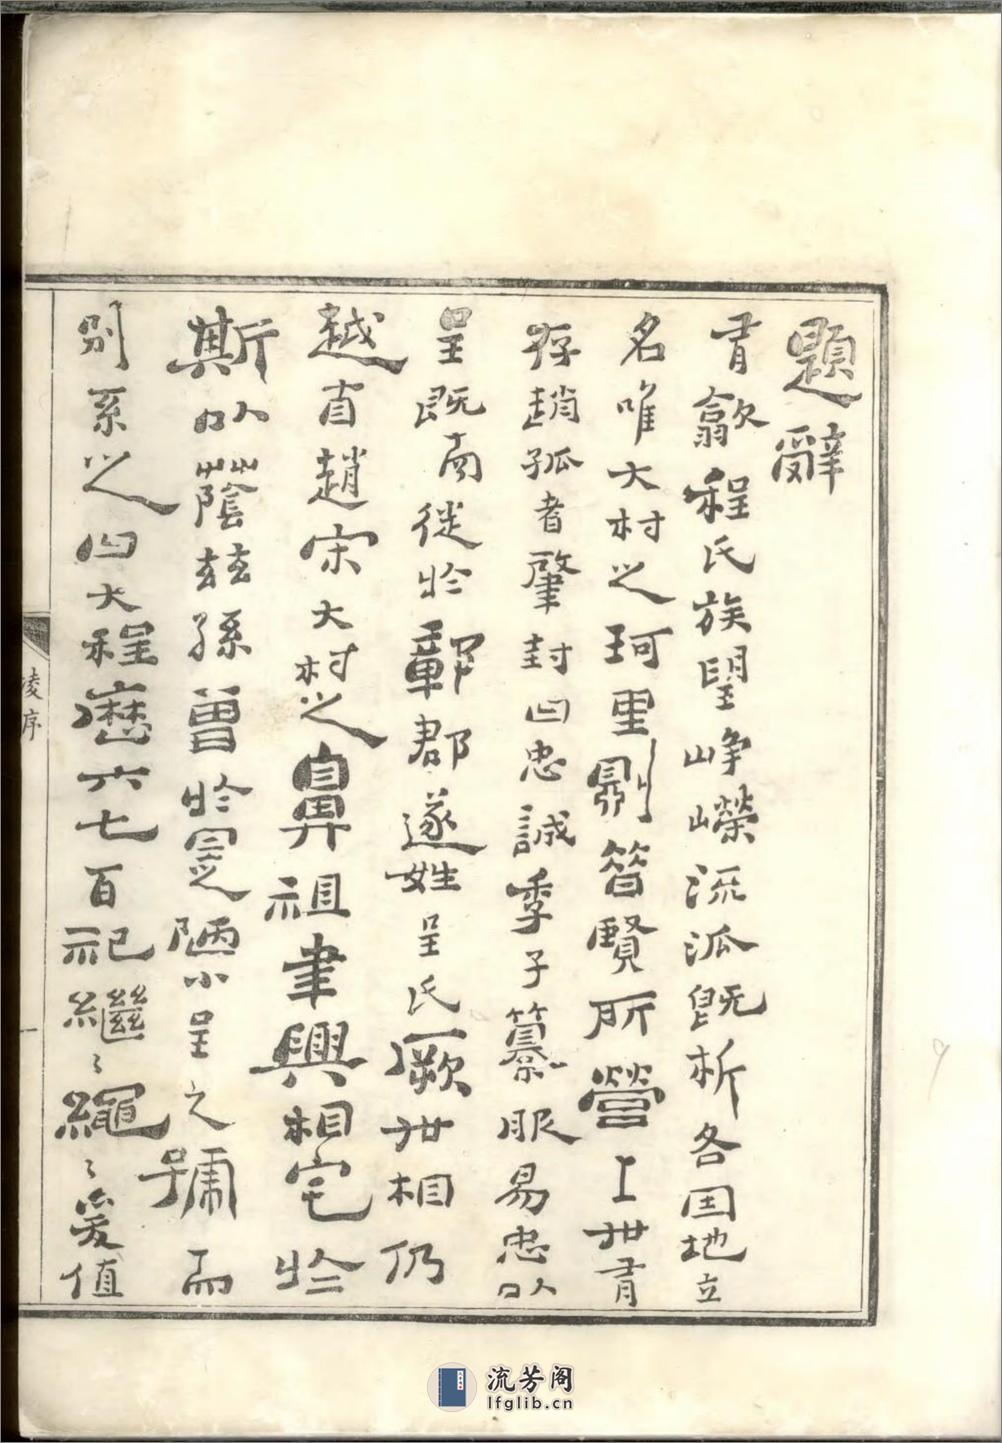 題辭
有歙程氏族望崢嶸流派既析各因地立
名唯大村之珂里昔賢所營上世有
存趙孤者肇封曰忠誠季子纂服易忠以
呈既南徙於鄣郡遂姓呈氏厥世相仍
越自趙宋大村之鼻祖聿興相宅於
斯以蔭玆孫曾於寔陋小呈之號而
別系之曰大程歷六七百祀繼〻繩〻爰值
凌序
一
流芳阁
lfglib.cn